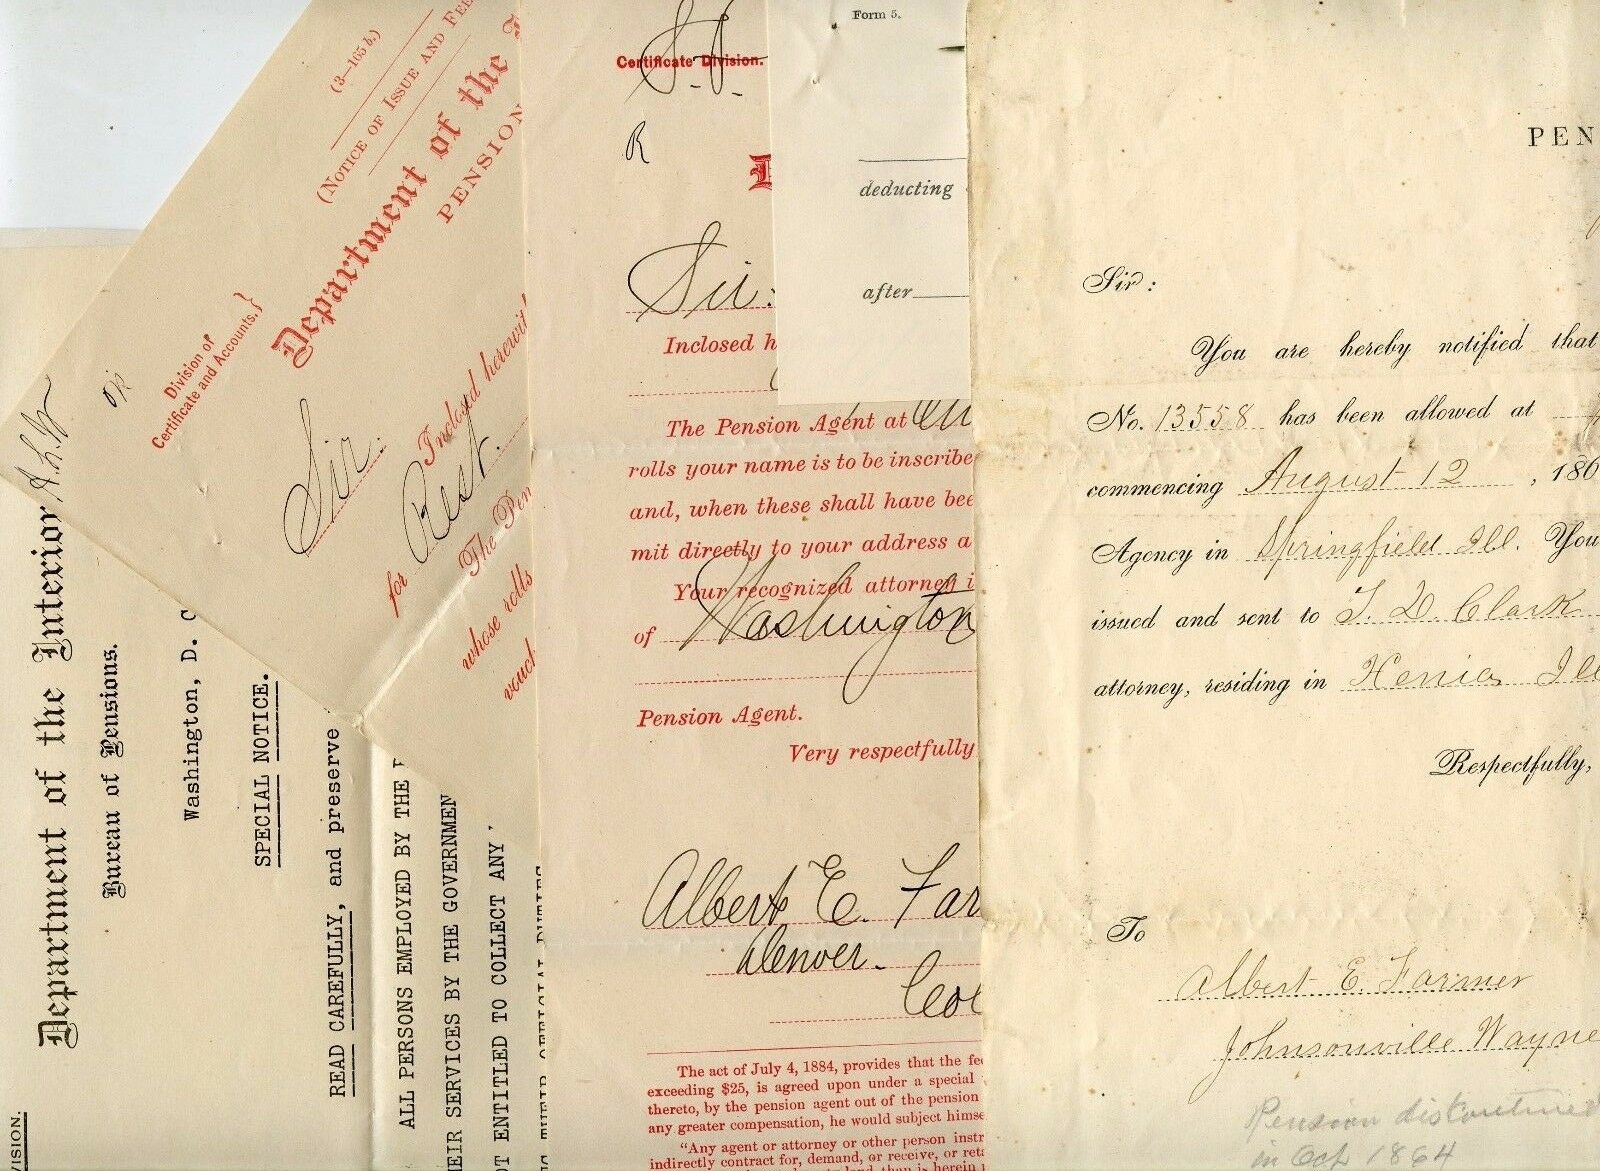 Department of the Interior
A.L.W
Bureau of Pensions.
Washington, D. C
SPECIAL NOTICE.
READ CAREFULLY, and preserve
ALL PERSONS EMPLOYED BY THE
EIR SERVICES BY THE GOVERNMEN
OT ENTITLED TO COLLECT ANY
THEIR OFFICIAL DUTIES
VISION.
(3—165 b.)
(NOTICE OF ISSUE AND FEE
Department of the I
PENSION
Division of
Certificate and Accounts.}
Sir:
Inclosed herewit
for Rest.
The Pen
whose rolls
vouch
Certificate Division.
R
D
Sir:
Inclosed h
The Pension Agent at
rolls your name is to be inscribe
and, when these shall have bee
mit directly to your address a
Your recognized attorney i
of Washington
Pension Agent.
Very respectfully
Albert E. Far
Denver.
Col
The act of July 4, 1884, provides that the fee
exceeding $25, is agreed upon under a special
thereto, by the pension agent out of the pension
any greater compensation, he would subject himse
"Any agent or attorney or other person instr
indirectly contract for, demand, or receive, or reta
Form 5.
deducting
after
PEN
Sir:
You are hereby notified that
No. 13558 has been allowed at
commencing August 12, 186
Agency in Springfield Ill. You
issued and sent to T. D. Clark
attorney, residing in Xenia Ill
Respectfully,
To
Albert E. Farmer
Johnsonville Wayne
Pension discontinued
in Oct 1864